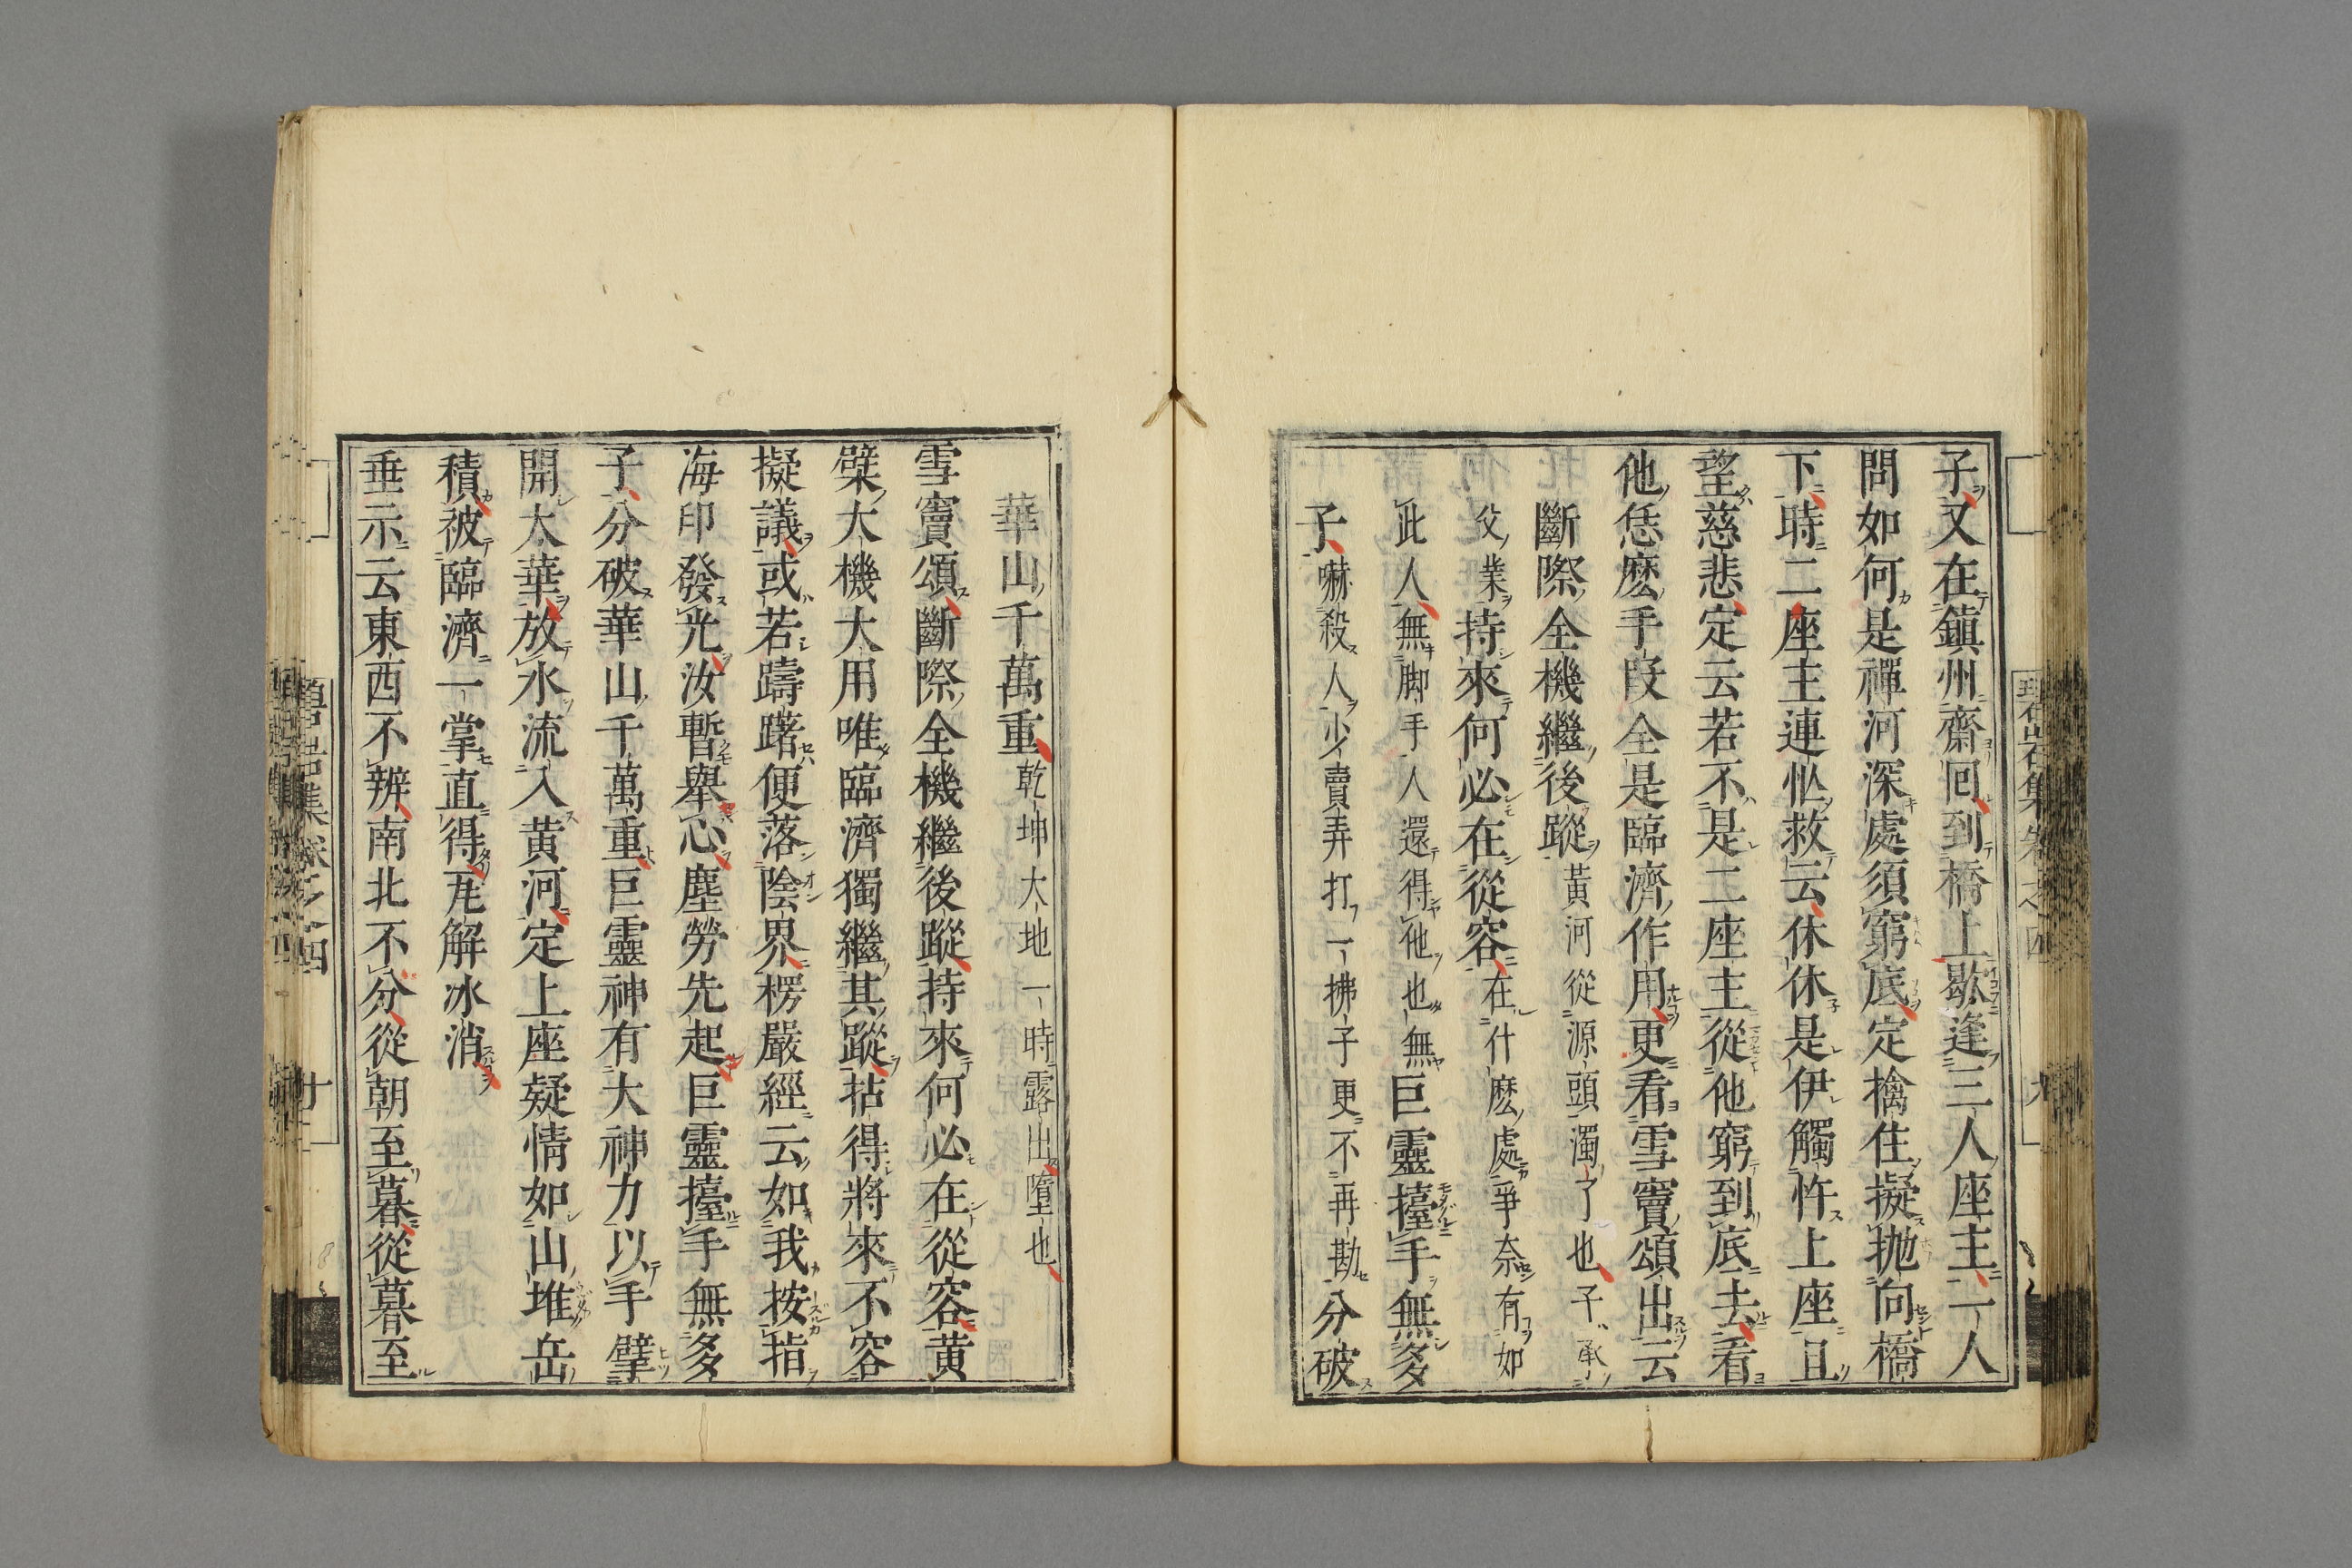 子又在鎮州齋囘到橋上歇逢三人座主一人
問如何是禪河深處須窮底定擒住擬抛向橋
下時二座主連忙救云休休是伊觸忤上座且
望慈悲定云若不是二座主從他窮到底去看
他恁麽手段全是臨濟作用更看雪竇頌出云
斷際全機繼後蹤黃河從源頭濁了也子承
父業持來何必在從容在什麽處爭奈有如
此人無脚手人還得他也無巨靈擡手無多
子嚇殺人少賣弄打一拂子更不再勘分破
華山千萬重乾坤大地一時露出墮也
雪竇頌斷際全機繼後蹤持來何必在從容黃
檗大機大用唯臨濟獨繼其蹤拈得將來不容
擬議或若躊躇便落陰界楞嚴經云如我按指
海印發光汝暫舉心塵勞先起巨靈擡手無多
子分破華山千萬重巨靈神有大神力以手擘
開太華放水流入黃河定上座疑情如山堆岳
積被臨濟一掌直得瓦解冰消
垂示云東西不辨南北不分從朝至暮從暮至
碧岩集卷之四
廿